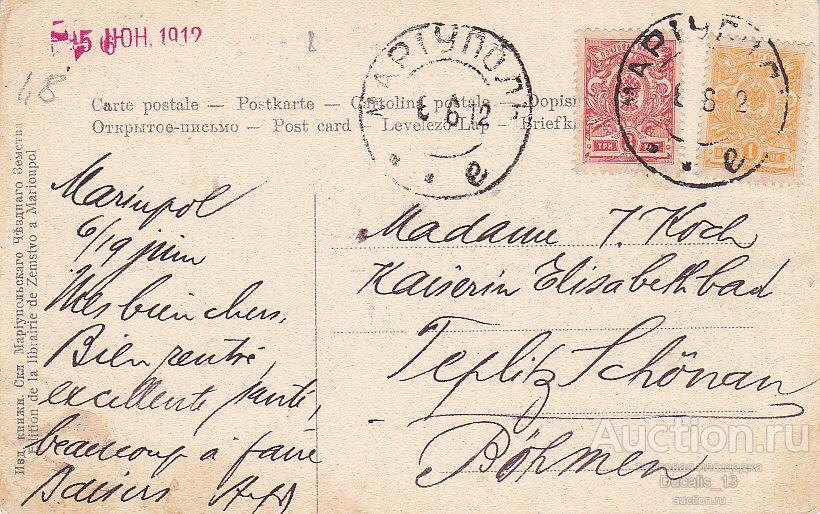 5 ІЮН. 1912
18
МАРІУПОЛЬ
6 6 12
МАРІУПОЛЬ
6 6 12
ТРИ 3 КОП.
1 КОП.
Carte postale — Postkarte — Cartolina postale — Dopisn
Открытое-письмо — Post card — Levelező-Lap — Briefk
Изд. книжн. Скл Маріупольскаго Уѣзднаго Земства
Edition de la librairie de Zemstvo a Marioupol
Mariupol
6/19 juin
Mes bien chers,
Bien rentré,
excellente santé,
beaucoup à faire
Baisers
Madame J. Koch
Kaiserin Elisabethbad
Teplitz Schönau
Böhmen
Auction.ru
Ducalis_13
auction.ru